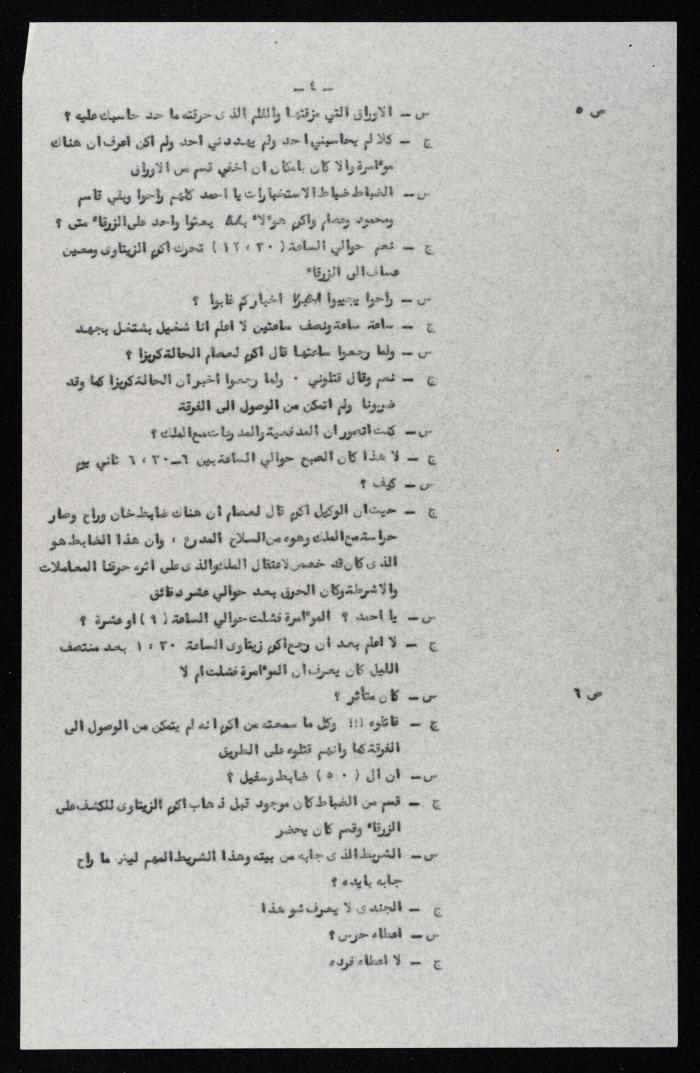 ـ ٤ ـ
ص ٥
س ـ الاوراق التي مزقتها والفلم الذي حرقته ما حد حاسبك عليه ؟
ج ـ كلا لم يحاسبني احد ولم يهددني احد ولم اكن اعرف ان هناك
موءامرة والا كان بامكان ان اخفي قسم من الاوراق
س ـ الضباط ضباط الاستخبارات يا احمد كلهم راحوا وبقي قاسم
ومحمود وعصام واكرم هوءلاء بعثوا واحد على الزرقاء متى ؟
ج ـ نعم حوالي الساعة ( ١٢،٣٠ ) تحرك اكرم الزيتاوى ومعين
عساف الى الزرقاء
س ـ راحوا يجيبوا اخباركم غابوا ؟
ج ـ ساعة ساعة ونصف ساعتين لا اعلم انا شغيل بشتغل بجهد
س ـ ولما رجعوا ساعتها قال اكرم لعصام الحالة كريزا ؟
ج ـ نعم وقال قتلوني ٠ ولما رجعوا اخبر ان الحالة كريزا كما وقد
ضربونا ولم اتمكن من الوصول الى الفرقة
س ـ كنت اتصور ان المدفعية والمدرعات مع الملك ؟
ج ـ لا هذا كان الصبح حوالي الساعة بين ٦ـ٦،٣٠ ثاني يوم
س ـ كيف ؟
ج ـ حيث ان الوكيل اكرم قال لعصام ان هناك ضابط خان وراح وصار
حراسة مع الملك وهوه من السلاح المدرع ، وان هذا الضابط هو
الذى كان قد خصص لاعتقال الملك والذى على اثره حرقنا المعاملات
والاشرطة وكان الحرق بعد حوالي عشر دقائق
س ـ يا احمد ؟ الموءامرة فشلت حوالي الساعة ( ٩ ) او عشرة ؟
ج ـ لا اعلم بعد ان رجع اكرم زيتاوى الساعة ١،٣٠ بعد منتصف
الليل كان يعرف ان الموءامرة فشلت ام لا
ص ٦
س ـ كان متأثر ؟
ج ـ قاتلوه !!! وكل ما سمعته من اكرم انه لم يتمكن من الوصول الى
الفرقة كما وانهم قتلوه على الطريق
س ـ ان ال ( ٥٠ ) ضابط وسفيل ؟
ج ـ قسم من الضباط كان موجود قبل ذهاب اكرم الزيتاوى للكشف على
الزرقاء وقسم كان يحضر
س ـ الشريط الذى جابه من بيته وهذا الشريط المهم ليش ما راح
جابه بايده ؟
ج ـ الجندى لا يعرف شو هذا
س ـ اعطاه حرس ؟
ج ـ لا اعطاه فرده